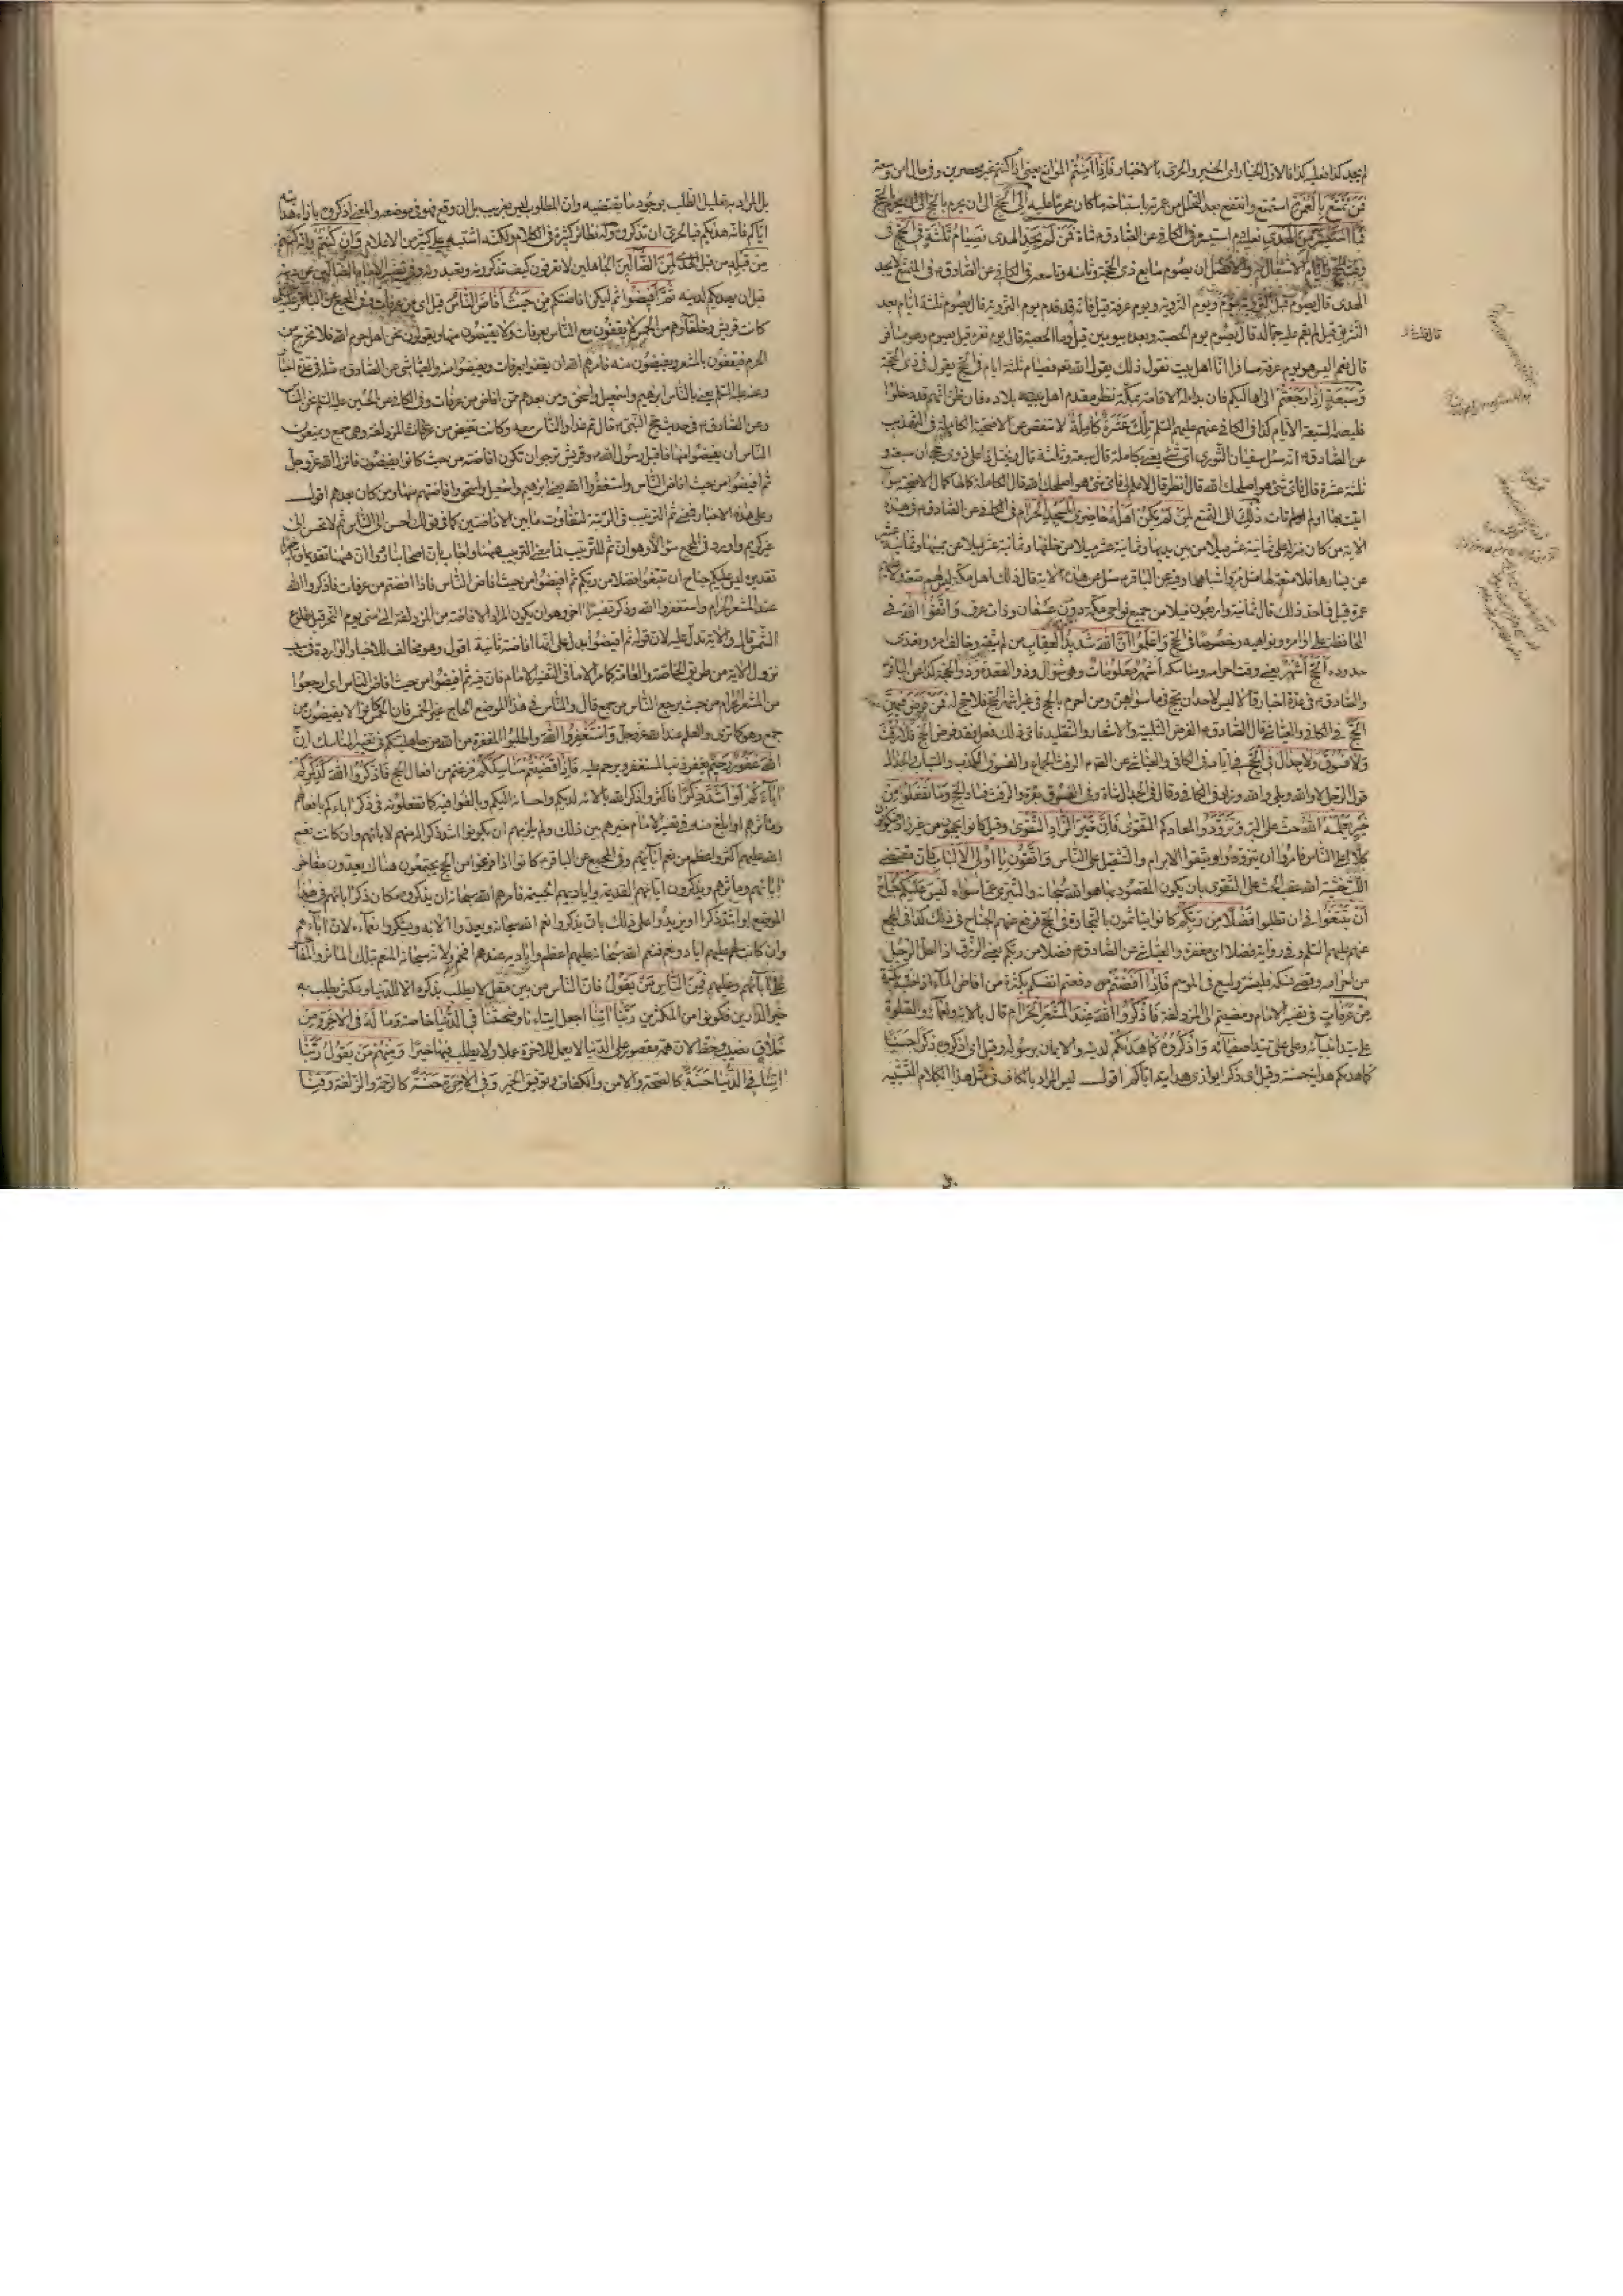 لم يجد كذا فعليه كذا فالاول الخيار اى الخبير والحرى بالاختيار فَاِذا اَمِنْتُمْ الموانع يعنى اذا كنتم غير محصرين وفى حال امن وسعة
فَمَنْ تَمَتَّعَ بِالْعُمْرَةِ استمتع وانتفع بعد التحلل من عمرته باستباحة ما كان محرما عليه اِلَى الْحَجِّ الى ان يحرم بالحج
فَمَا اسْتَيْسَرَ مِنَ الْهَدْىِ فعليه دم استيسر وفى الكافى عن الصادق ع شاة فَمَنْ لَمْ يَجِدْ الهدى فَصِيامُ ثَلثَةِ فى الحج فى
وقته وايام الاشتغال به والافضل ان يصوم سابع ذى الحجة وثامنه وتاسعه فى الكافى عن الصادق ع فى المتمتع لا يجد
الهدى قال يصوم قبل التروية بيوم ويوم التروية ويوم عرفة قيل فانه قدم يوم التروية قال يصوم ثلثة ايام بعد
التشريق قيل لم يقم عليه جماله قال يصوم يوم الحصبة وبعده بيومين قيل وما الحصبة قال يوم نفره قيل يصوم وهو مسافر
قال نعم اليس هو يوم عرفة مسافرا انا اهل بيت نقول ذلك بقول الله تعم فصيام ثلثة ايام فى الحج يقول فى ذى الحجة
وَسَبْعَةٍ اِذا رَجَعْتُمْ الى اهاليكم فان بدا له الاقامة بمكة نظر مقدم اهل بلاده فان ظن انهم قد دخلوا
فليصم السبعة الايام كذا فى الكافى عنهم عليهم السلم تِلْكَ عَشَرَةٌ كامِلَةٌ لا تنقص عن الاضحية الكاملة فى التهذيب
عن الصادق ع انه سئل سفيان الثورى اى شئ يعنى بكاملة قال سبعة وثلثة قال ويختل ذا على ذى حجى ان سبعة و
ثلثة عشرة قال فاى شئ هو اصلحك الله قال انظر قال لا علم لى فاى شئ هو اصلحك الله قال الكاملة كمالها كمال الاضحية سواء
اتيت بها او لم تات ذلِكَ اى التمتع لِمَنْ لَمْ يَكُنْ اَهْلُهُ حاضِرِى الْمَسْجِدِ الْحَرامِ فى الكافى عن الصادق ع فى هذه
الاية من كان منزله على ثمانية عشر ميلا من بين يديها وثمانية عشر ميلا من خلفها وثمانية عشر ميلا عن يمينها وثمانية عشر
عن يسارها فلا متعة لها مثل مر واشباهها وفيه عن الباقر ع سئل عن هذه الاية قال ذلك اهل مكة ليس لهم متعة ولا عليهم
عمرة قيل فما حد ذلك قال ثمانية واربعون ميلا من جميع نواحى مكة دون عسفان وذات عرق وَاتَّقُوا اللهَ فى
المحافظة على اوامره ونواهيه وخصوصا فى الحج وَاعْلَمُوا اَنَّ اللهَ شَديدُ الْعِقابِ لمن لم يتقه وخالف امره وتعدى
حدوده اَلْحَجُّ اَشْهُرٌ يعنى وقت احرامه ومناسكه اَشْهُرٌ مَعْلُوماتٌ وهو شوال وذو القعدة وذو الحجة كذا عن الباقر
والصادق ع فى عدة اخبار وقالا ليس لاحد ان يحج فيما سواهن ومن احرم بالحج فى غير اشهر الحج فلا حج له فَمَنْ فَرَضَ فيهِنَّ
الْحَجَّ فى الكافى والعياشى قال الصادق ع الفرض التلبية والاشعار والتقليد فاى ذلك فعل فقد فرض الحج فَلا رَفَثَ
وَلا فُسُوقَ وَلا جِدالَ فى الْحَجِّ فى ايامه فى الكافى والعياشى عن الصادق ع الرفث الجماع والفسوق الكذب والسباب والجدال
قول الرجل لا والله وبلى والله وزاد فى الكافى وقال فى الجدال شاة وفى الفسوق بقرة والرفث فساد الحج وَما تَفْعَلُوا مِنْ
خَيْرٍ يَعْلَمْهُ اللهُ حث على البر وَتَزَوَّدُوا لمعادكم التقوى فَاِنَّ خَيْرَ الزّادِ التَّقْوى وقيل كانوا يحجون من غير زاد فيكونون
كلا على الناس فامروا ان يتزودوا ويتقوا الابرام والتثقيل على الناس وَاتَّقُونِ يا اُولِى الاَلْبابِ فان مقتضى
اللب خشية الله عقب الحث على التقوى بان يكون المقصود بها هو الله سبحانه والتبرى عما سواه لَيْسَ عَلَيْكُمْ جُناحٌ
اَنْ تَبْتَغُوا فى ان تطلبوا فَضْلاً مِنْ رَبِّكُمْ كانوا يتاثمون بالتجارة فى الحج فرفع عنهم الجناح فى ذلك كذا فى المجمع
عنهم عليهم السلم وفى رواية فضلا اى مغفرة والعياشى عن الصادق ع فضلا من ربكم يعنى الرزق اذا احل الرجل
من احرامه وقضى نسكه فليشتر وليبع فى الموسم فَاِذا اَفَضْتُمْ دفعتم انفسكم بكثرة من افاض الماء اذا صبه بكثرة
مِنْ عَرَفاتٍ فى تفسير الامام ومضيتم الى المزدلفة فَاذْكُرُوا اللهَ عِنْدَ الْمَشْعَرِ الْحَرامِ قال بآلائه ونعمائه والصلوة
على سيد انبيائه وعلى على سيد اصفيائه وَاذْكُرُوهُ كَما هَديكُمْ لدينه والايمان برسوله وقيل اى اذكروه ذكرا حسنا
كما هديكم هداية حسنة وقيل اى ذكرا يوازى هدايته اياكم اقول ليس المراد بالكاف فى مثل هذا الكلام التشبيه
بل المراد به تعليل الطلب بوجود ما يقتضيه وان المطلوب ليس بغريب بل ان وقع فهو فى موضعه والمعنى اذكروه بازاء هدايته
اياكم فانه هديكم فبالحرى ان تذكروه وله نظائر كثيرة فى الكلام ولكنه اشتبه على كثير من الاعلام وَاِنْ كُنْتُمْ وانه كنتم
مِنْ قَبْلِهِ من قبل الهدى لَمِنَ الضّالّينَ الجاهلين لا تعرفون كيف تذكرونه وتعبدونه وفى تفسير الامام الضالين عن دينه
قبل ان يهديكم لدينه ثُمَّ اَفيضُوا ثم ليكن افاضتكم مِنْ حَيْثُ اَفاضَ النّاسُ قيل اى من عرفات وفى المجمع عن الباقر عليه السلم
كانت قريش وحلفاؤهم من الحمس لا يقفون مع الناس بعرفات ولا يفيضون منها ويقولون نحن اهل حرم الله فلا نخرج من
الحرم فيقفون بالمشعر ويفيضون منه فامرهم الله ان يقفوا بعرفات ويفيضوا منه والعياشى عن الصادق ع مثله فى عدة اخبار
وعنه عليه السلم يعنى بالناس ابرهيم واسمعيل واسحق ومن بعدهم ممن افاض من عرفات وفى الكافى عن الحسين عليه السلم نحن الناس
وعن الصادق ع فى حديث حج النبى ص قال ثم غدا والناس معه وكانت قريش تفيض من المزدلفة وهى جمع ويمنعون
الناس ان يفيضوا منها فاقبل رسول الله ص وقريش ترجو ان تكون افاضته من حيث كانوا يفيضون فانزل الله عز وجل
ثم افيضوا من حيث افاض الناس واستغفروا الله يعنى ابرهيم واسمعيل واسحق فى افاضتهم منها ومن كان بعدهم اقول
وعلى هذه الاخبار فمعنى ثم الترتيب فى الرتبة للتفاوت ما بين الافاضتين كما فى قولك احسن الى الناس ثم لا تحسن الى
غير كريم واورد فى المجمع سؤالا وهو ان ثم للترتيب فما معنى الترتيب ههنا واجاب بان اصحابنا رووا ان ههنا تقديما وتاخيرا
تقديره ليس عليكم جناح ان تبتغوا فضلا من ربكم ثم افيضوا من حيث افاض الناس فاذا افضتم من عرفات فاذكروا الله
عند المشعر الحرام واستغفروا الله وذكر تفسيرا آخر وهو ان يكون المراد الافاضة من المزدلفة الى منى يوم النحر قبل طلوع
الشمس قال والآية تدل عليه لان قوله ثم افيضوا يدل على انها افاضة ثانية اقول وهو مخالف للاخبار الواردة فى سبب
نزول الآية من طريق الخاصة والعامة كما مر اما فى التفسير الامام فان فيه ثم افيضوا من حيث افاض الناس اى ارجعوا
من المشعر الحرام من حيث يرجع الناس من جمع قال والناس فى هذا الموضع الحاج غير الحمس فان الحمس كانوا لا يفيضون من
جمع وهو كما ترى والعلم عند الله عز وجل وَاسْتَغْفِرُوا اللهَ واطلبوا المغفرة من الله من جاهليتكم فى تغيير المناسك اِنَّ
اللهَ غَفُورٌ رَحيمٌ يغفر ذنب المستغفر ويرحم عليه فَاِذا قَضَيْتُمْ مَناسِكَكُمْ فرغتم من افعال الحج فَاذْكُرُوا اللهَ كَذِكْرِكُمْ
ابآءَكُمْ اَوْ اَشَدَّ ذِكْرًا فاكثروا ذكر الله بآلائه لديكم واحسانه اليكم وبالغوا فيه كما تفعلونه فى ذكر ابائكم بافعالهم
وماثرهم او ابلغ منه وفى تفسير الامام خيرهم بين ذلك ولم يلزمهم ان يكونوا اشد ذكرا له منهم لابائهم وان كانت نعم
الله عليهم اكثر واعظم من نعم ابائهم وفى المجمع عن الباقر ع كانوا اذا فرغوا من الحج يجتمعون هناك يعدون مفاخر
ابائهم وماثرهم ويذكرون ايامهم القديمة واياديهم الجسيمة فامرهم الله سبحانه ان يذكروه مكان ذكر ابائهم فى هذا
الموضع او اشد ذكرا او يزيدوا على ذلك بان يذكروا نعم الله سبحانه ويعدوا آلائه ويشكروا نعمآءه لان آباءهم
وان كانت لهم عليهم اياد ونعم فنعم الله سبحانه عليهم اعظم واياديه عندهم افخم ولانه سبحانه المنعم بتلك الماثر والمفاخر
على آبائهم وعليهم فَمِنَ النّاسِ مَنْ يَقُولُ فان الناس من بين مقل لا يطلب بذكره الا الدنيا ومكثر يطلب به
خير الدارين فكونوا من المكثرين رَبَّنا آتِنا اجعل ايتاءنا ومنحتنا فِى الدُّنْيا خاصة وَما لَهُ فِى الاخِرَةِ مِنْ
خَلاقٍ نصيب وحظ لان همه مقصور على الدنيا لا يعمل للاخرة عملا ولا يطلب فيها خيرا وَمِنْهُمْ مَنْ يَقُولُ رَبَّنا
اتِنا فِى الدُّنْيا حَسَنَةً كالصحة والامن والكفاف وتوفيق الخير وَفِى الاخِرَةِ حَسَنَةً كالرحمة والزلفة وَقِنا